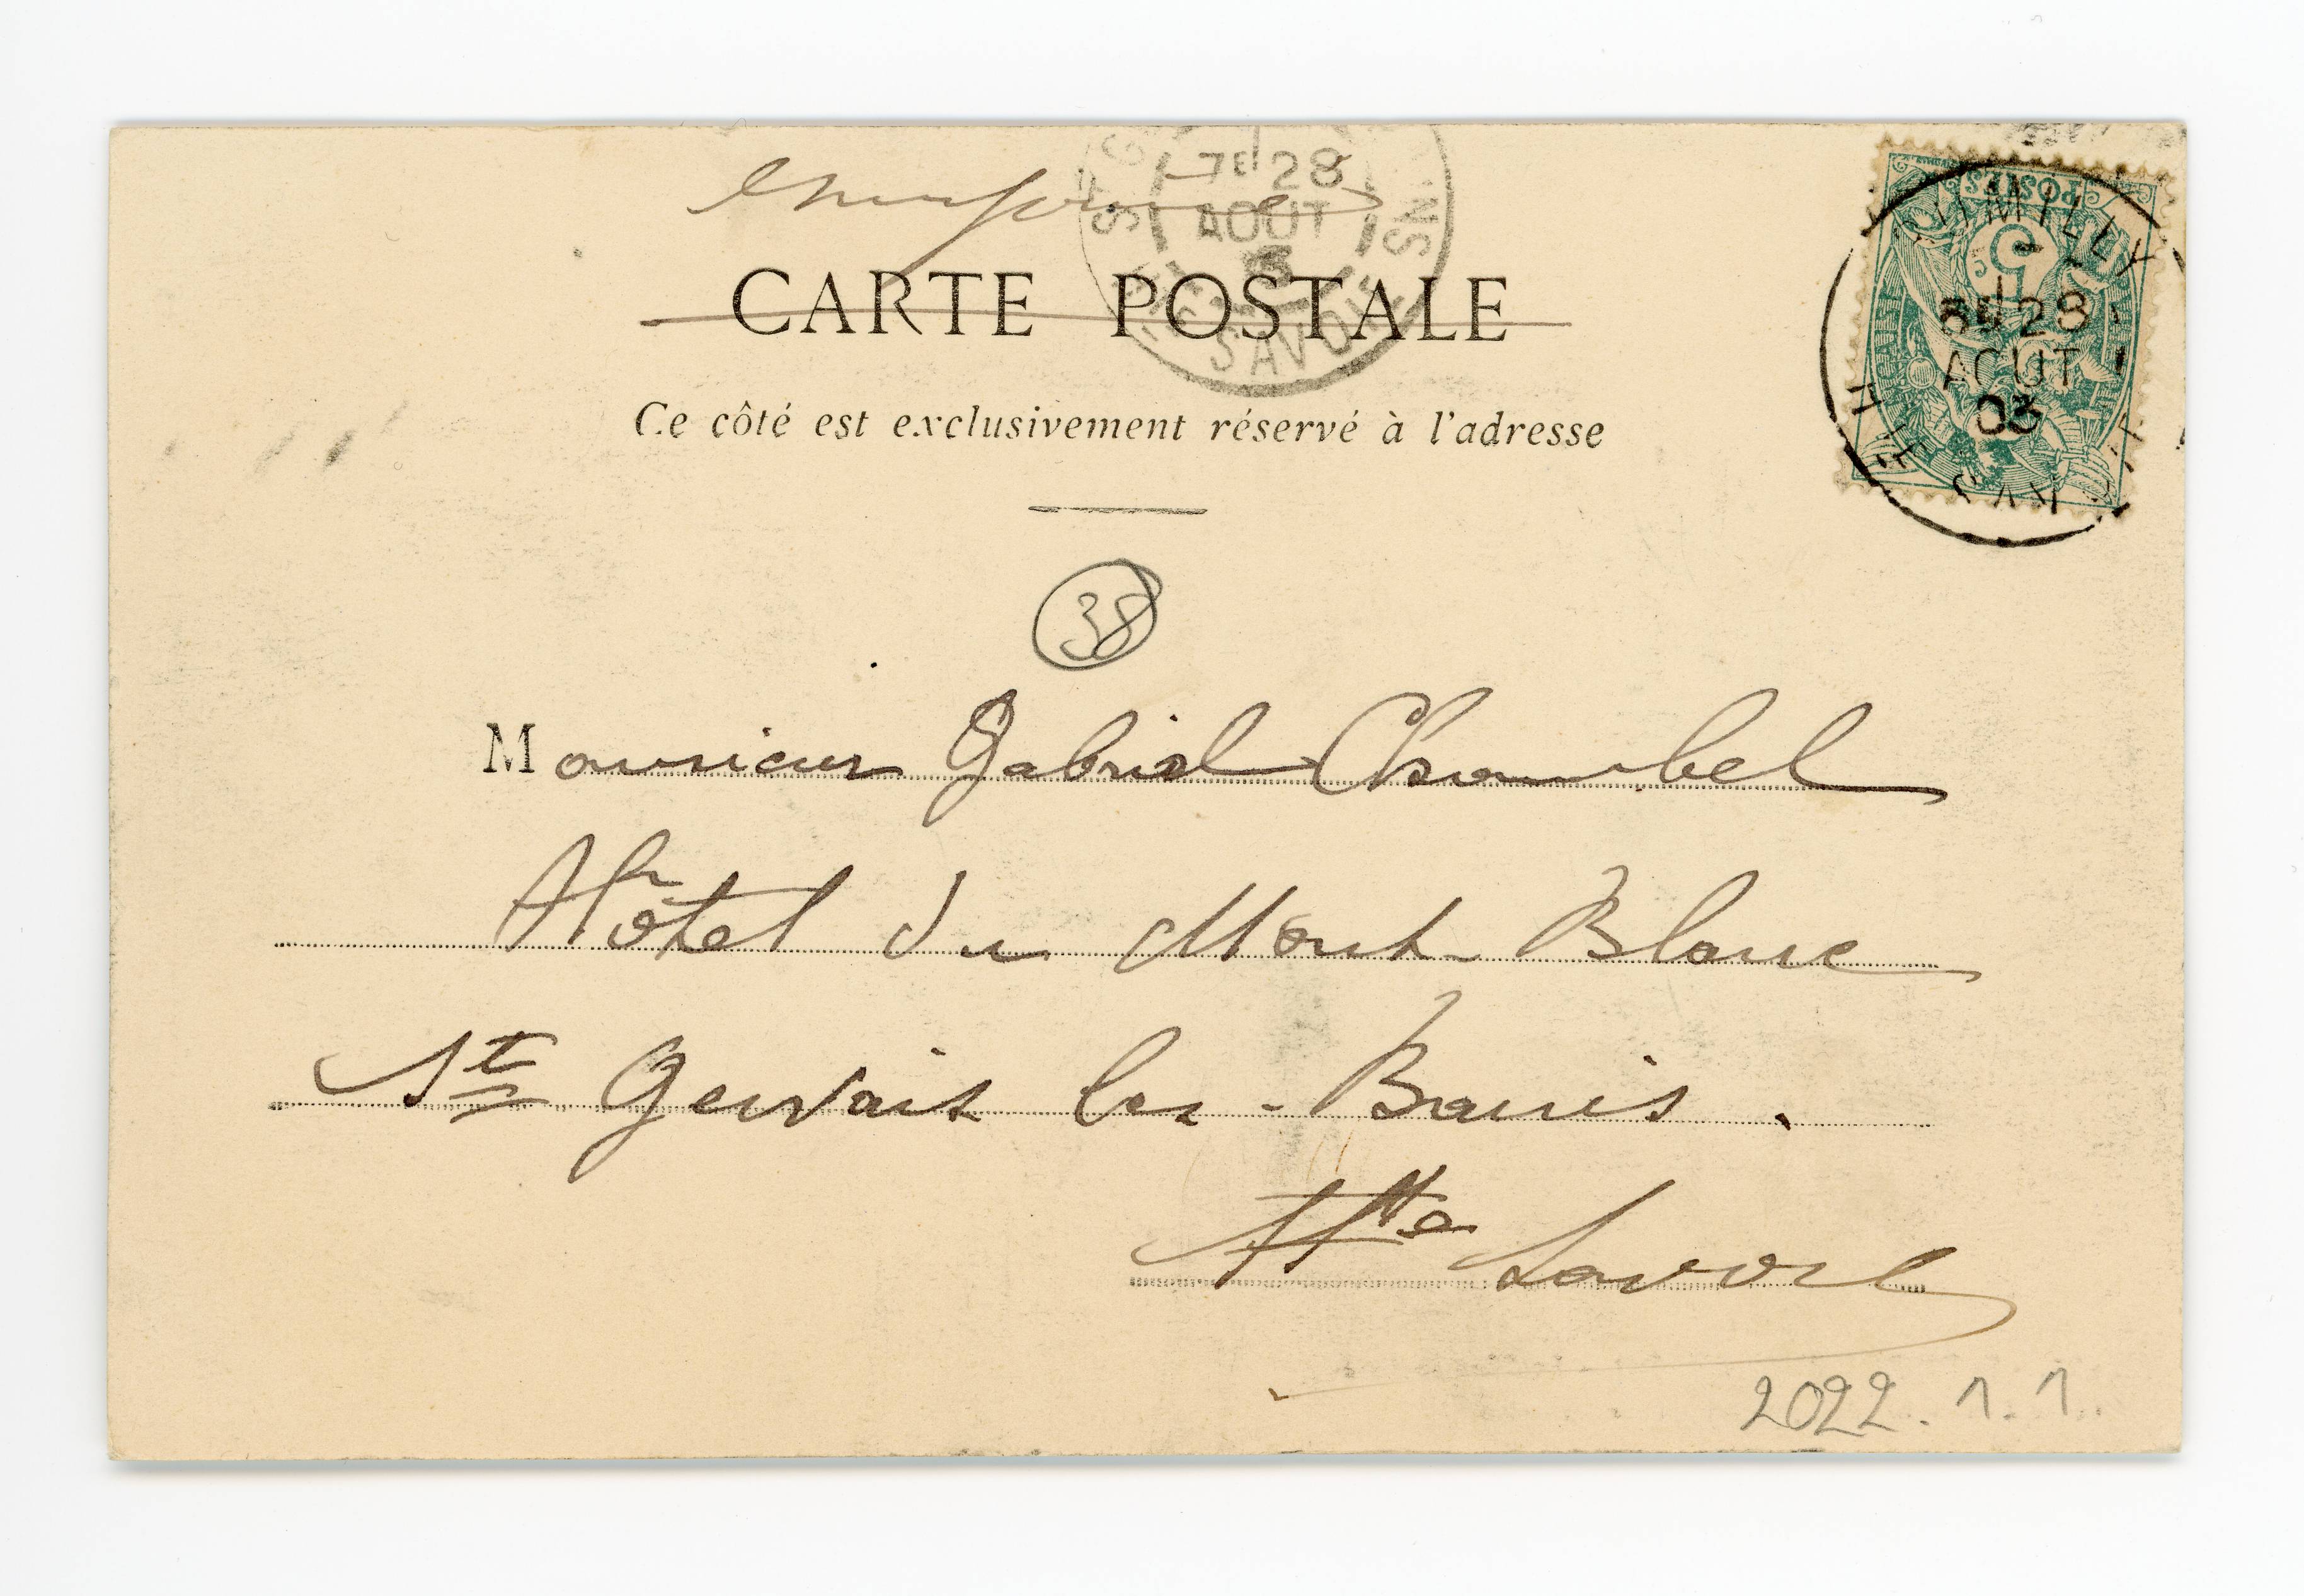 Imprimé
CARTE POSTALE
Ce côté est exclusivement réservé à l'adresse
7E 28
AOUT
SAVOIE
POSTES
5
RUMILLY
3E 28
AOUT
03
HTE SAVOIE
38
Monsieur Gabriel Chambel
Hôtel du Mont-Blanc
St Gervais les-Bains.
Hte Savoie
2022.1.1.